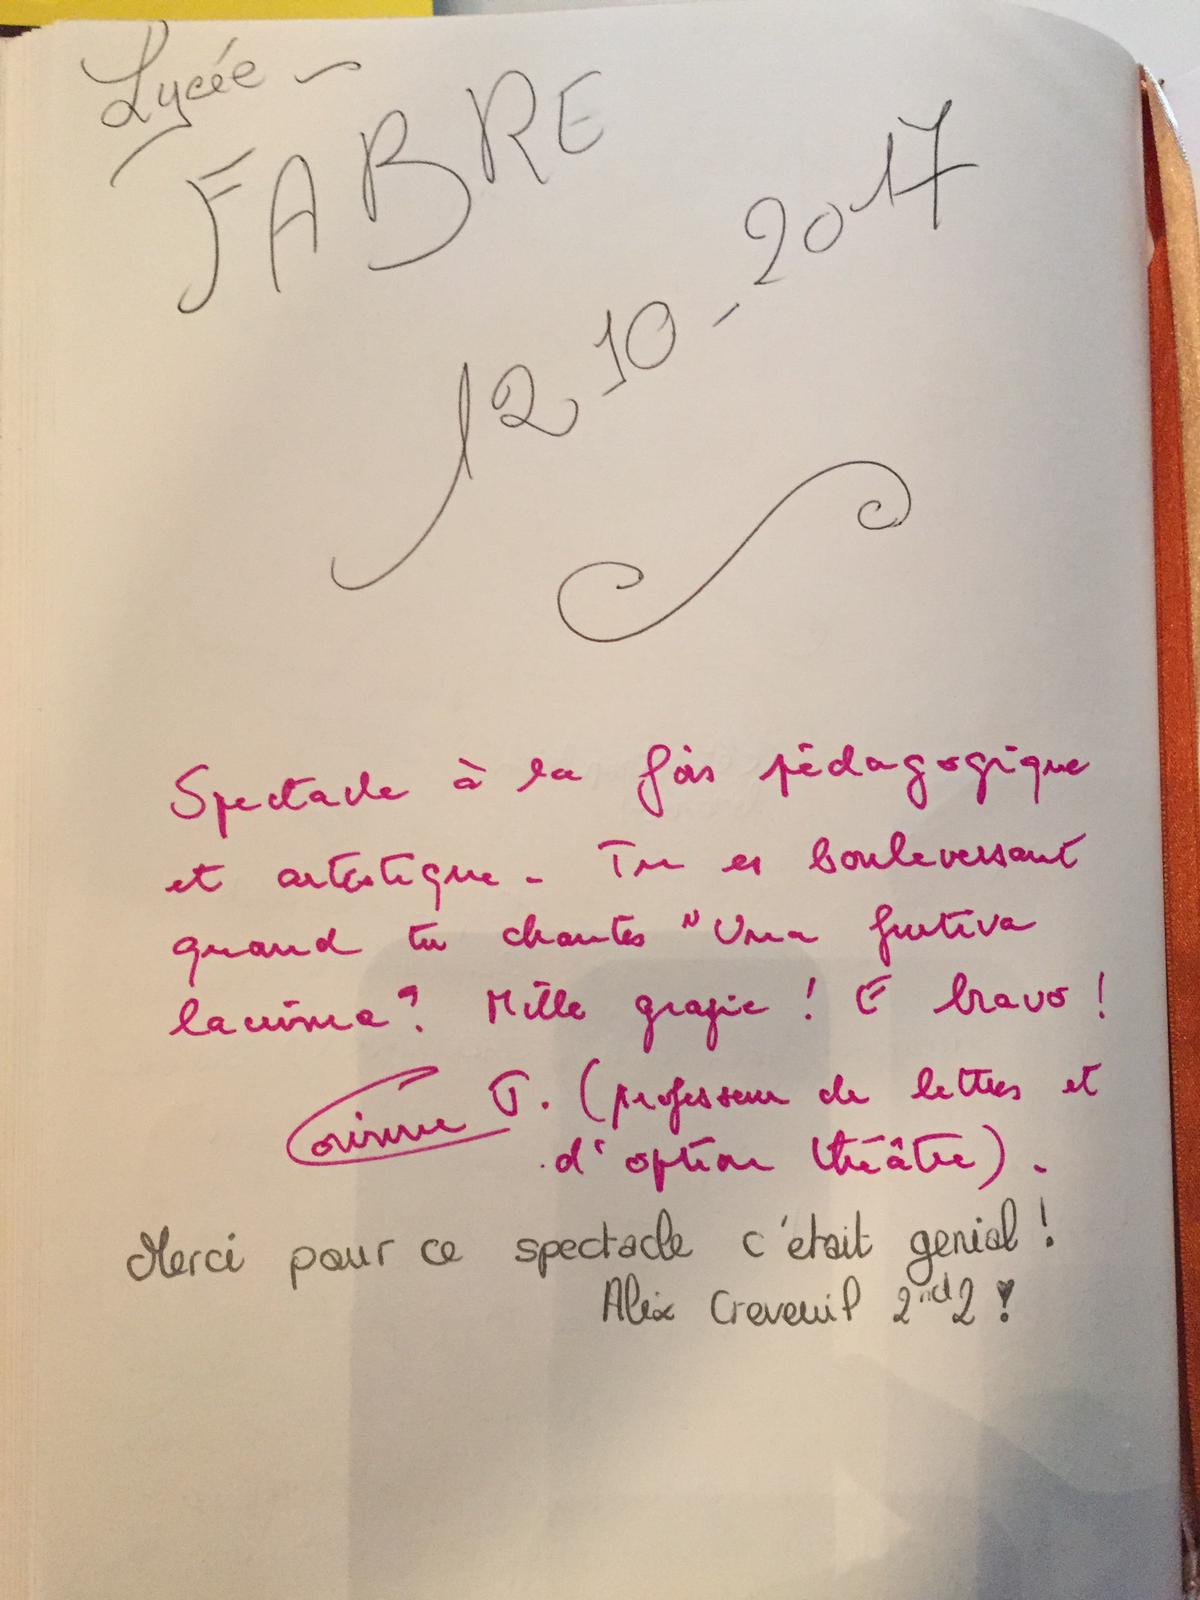 Lycée
FABRE
12 10 - 2017
Spectacle à la fois pédagogique
et artistique. Tu es bouleversant
quand tu chantes "Una furtiva
lacrima". Mille grazie ! E bravo !
Corinne T. (professeur de lettres et
d'option théâtre).
Merci pour ce spectacle c'était genial !
Alix Creveuil 2nd2 !